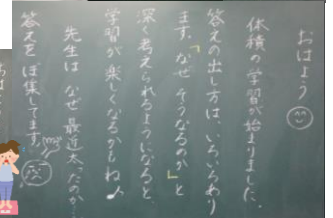 おはよう
体積の学習が始まりました。
答えの出し方は、いろいろあり
ます。「なぜ そうなるのか」と
深く考えられるようになると、
学習が楽しくなるかもね♪
先生は なぜ 最近太ったのか…
答えを ぼ集してます。